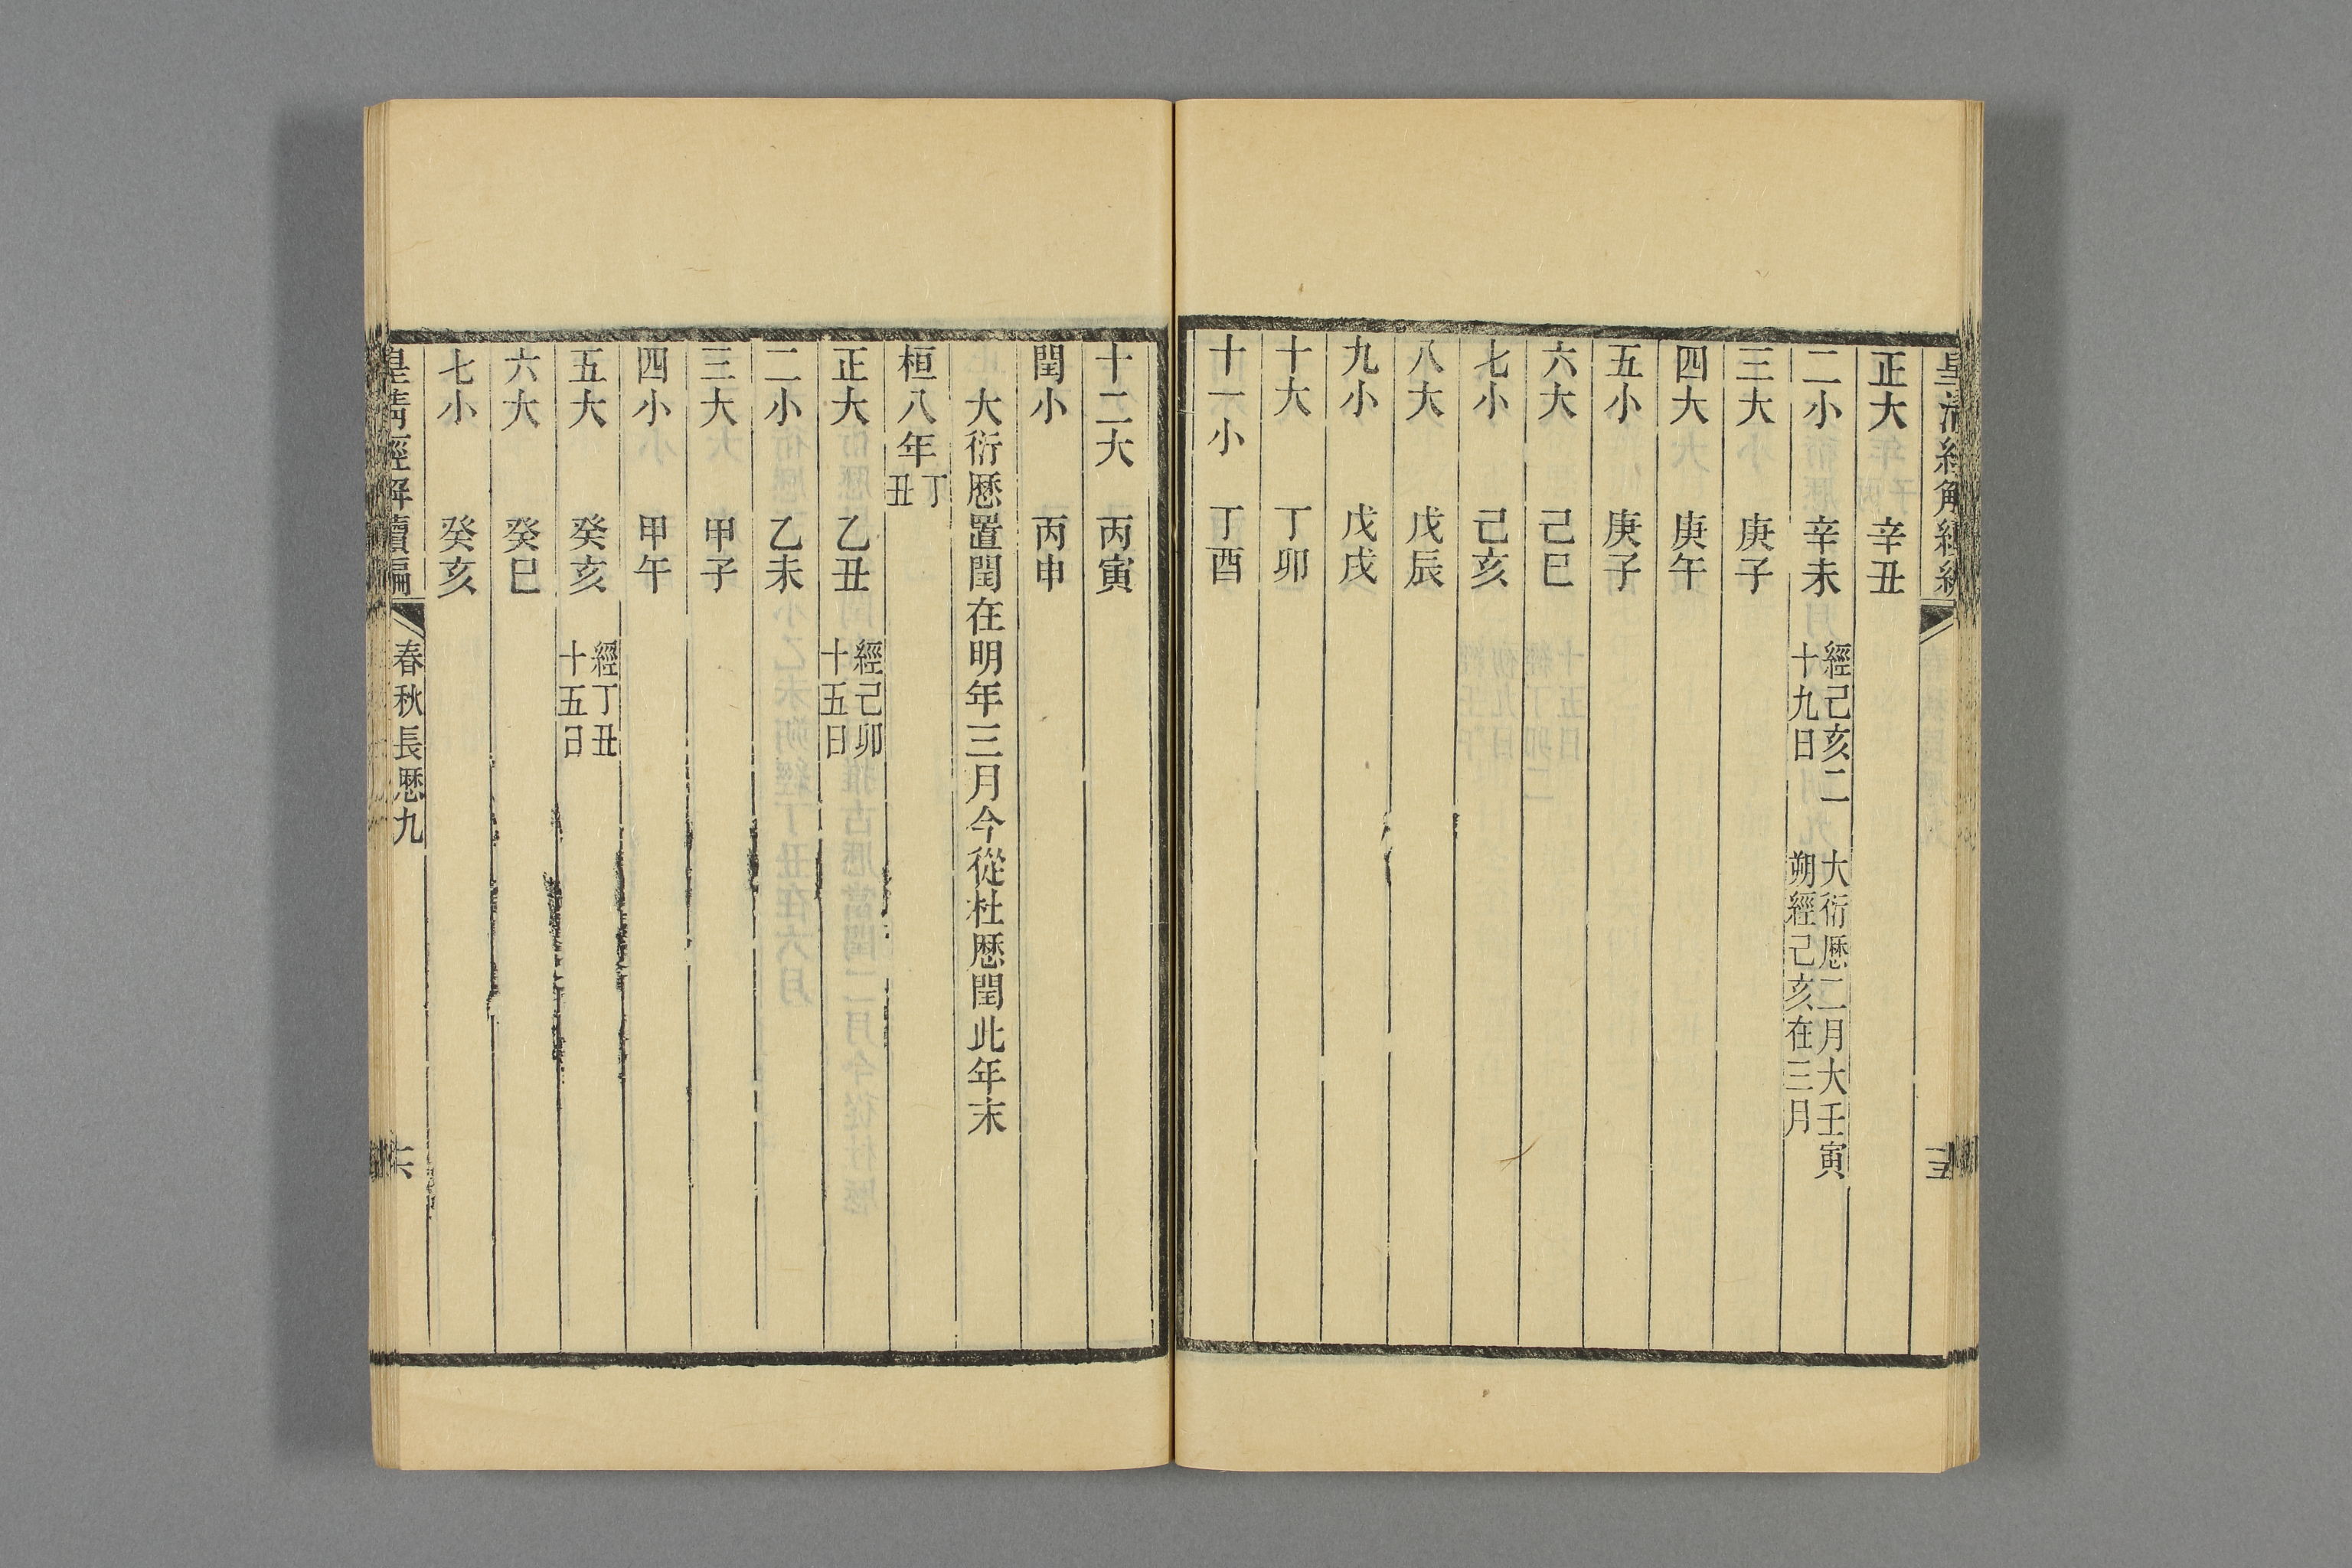 正大　辛丑
二小　辛未　經己亥二十九日　大衍厯二月大壬寅朔經己亥在三月
三大　庚子
四大　庚午
五小　庚子
六大　己巳
七小　己亥
八大　戊辰
九小　戊戌
十大　丁卯
十一小　丁酉
十二大　丙寅
閏小　丙申
大衍厯置閏在明年三月今從杜厯閏此年末
桓八年丁丑
正大　乙丑　經己卯十五日
二小　乙未
三大　甲子
四小　甲午
五大　癸亥　經丁丑十五日
六大　癸巳
七小　癸亥
皇清經解續編　春秋長厯九　六